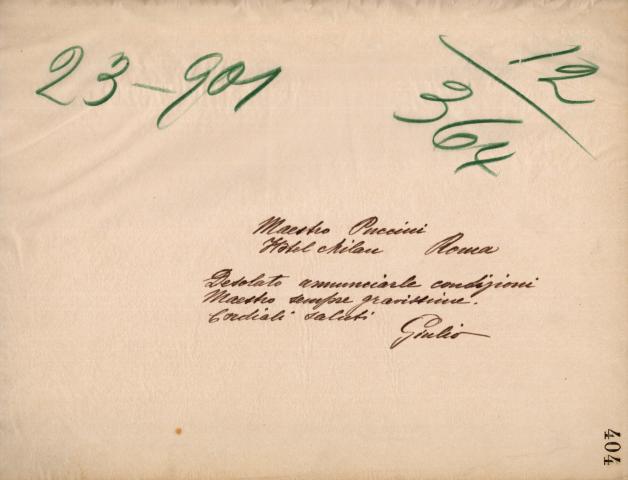 23-901
12/364
Maestro Puccini
Hôtel Milan Roma
Desolato annunciarle condizioni
Maestro sempre gravissime.
Cordiali saluti
Giulio
404